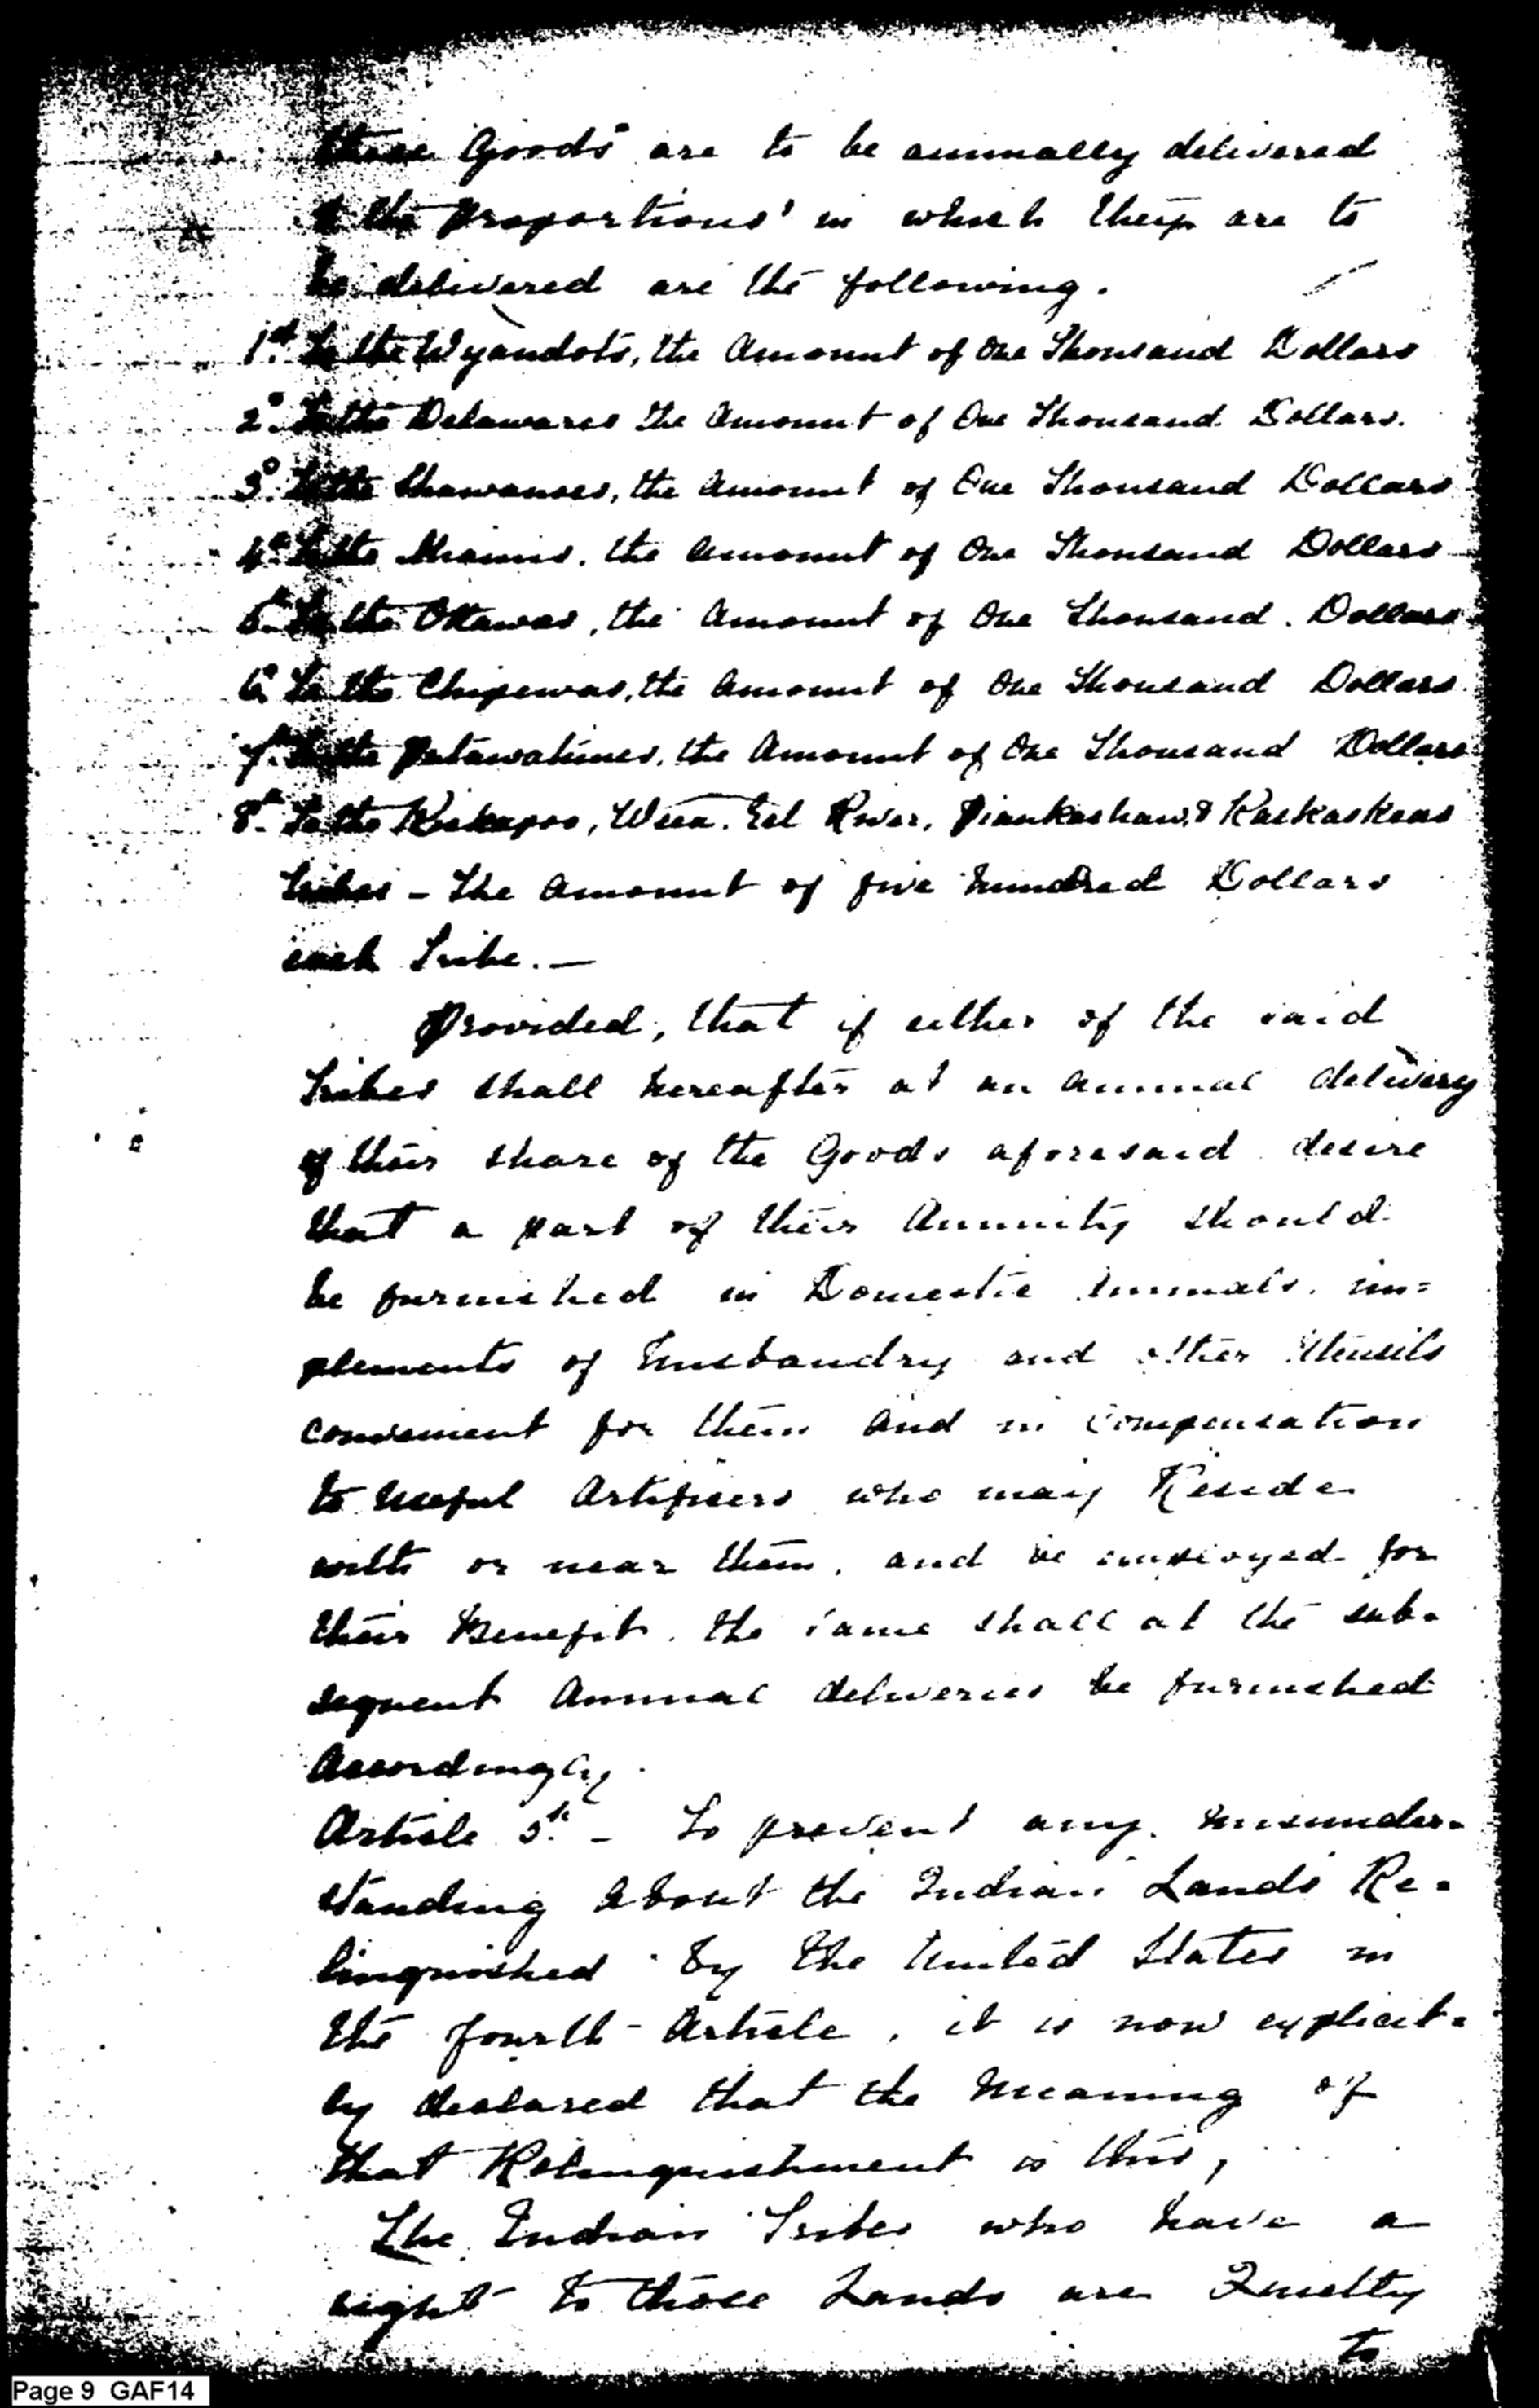 those Goods are to be annually delivered
& the proportions in which they are to
be delivered are the following.
1st. To the Wyandots, the Amount of One Thousand Dollars
2d. To the Delawares the Amount of One Thousand Dollars.
3d. To the Shawanoes, the Amount of One Thousand Dollars
4th. To the Miamis. the Amount of One Thousand Dollars
5th. To the Ottawas, the Amount of One Thousand. Dollars
6th. To the Chipewas, the Amount of One Thousand Dollars
7th. To the Putawatimes, the Amount of One Thousand Dollars
8th. To the Kickapoo, Weea. Eel River, Piankashaw, & Kaskaskeas
Tribes - The Amount of five hundred Dollars
each Tribe. —
Provided, that if either of the said
Tribes shall hereafter at an annual delivery
of their share of the Goods aforesaid desire
that a part of their Annuity should
be furnished in Domestic Animals. im=
plements of husbandry and other Utensils
convenient for them and in Compensation
to useful Artificers who may Reside
with or near them, and be employed for
their Benefit. the same shall at the sub-
sequent Annual deliveries be furnished
Accordingly.
Article 5th. - To prevent any misunder-
standing About the Indian Lands Re-
linquished by the United States in
the fourth Article, it is now explicit-
ly declared that the Meaning of
that Relinquishment is this,
The Indian Tribes who have a
right to those Lands are Quietly
to
Page 9 GAF14